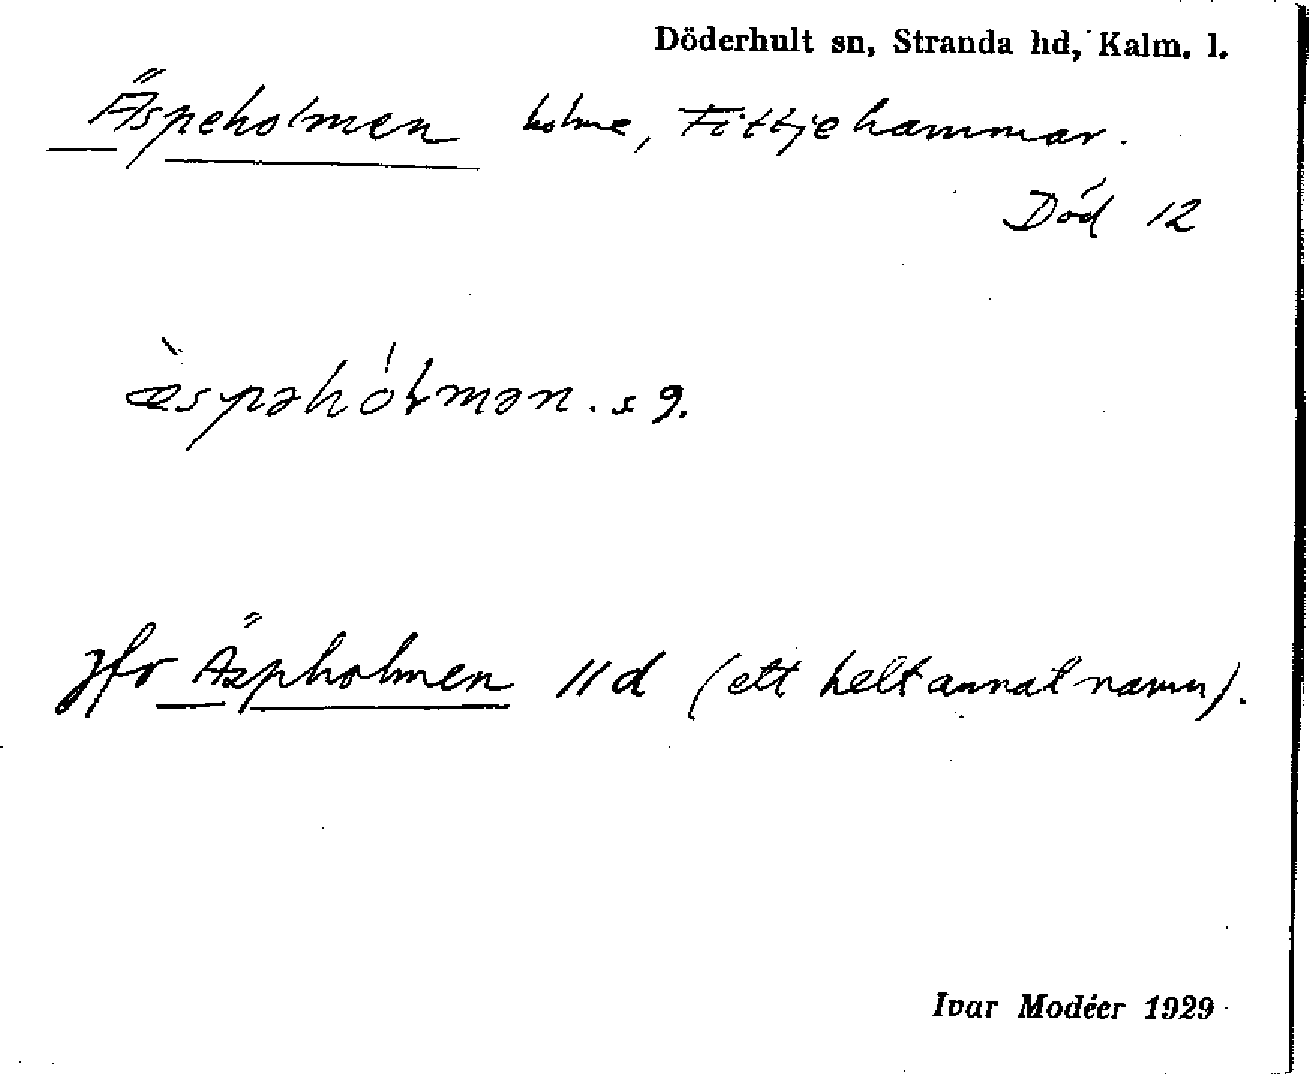 Döderhult sn, Stranda hd, Kalm. l.
Äspeholmen holme, Fittjehammar.
Död 12
æ̀spəhólmən. s 9.
Jfr Äspholmen 11d (ett helt annat namn).
Ivar Modéer 1929